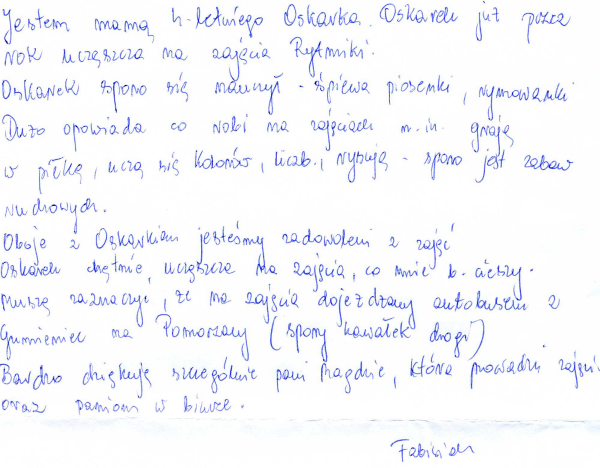 Jestem mamą 4-letniego Oskarka. Oskarek już przez
rok uczęszcza na zajęcia Rytmiki.
Oskarek sporo się nauczył - śpiewa piosenki, rymowanki
Dużo opowiada co robi na zajęciach m.in. grają
w piłkę, uczą się kolorów, liczb, rysują - sporo jest zabaw
ruchowych.
Oboje z Oskarkiem jesteśmy zadowoleni z zajęć
Oskarek chętnie uczęszcza na zajęcia, co mnie b. cieszy.
Muszę zaznaczyć, że na zajęcia dojeżdzamy autobusem z
Gumieniec na Pomorzany (spory kawałek drogi)
Bardzo dziękuję szczególnie pani Magdzie, która prowadzi zajęcia
oraz paniom w biurze.
Fabisiak